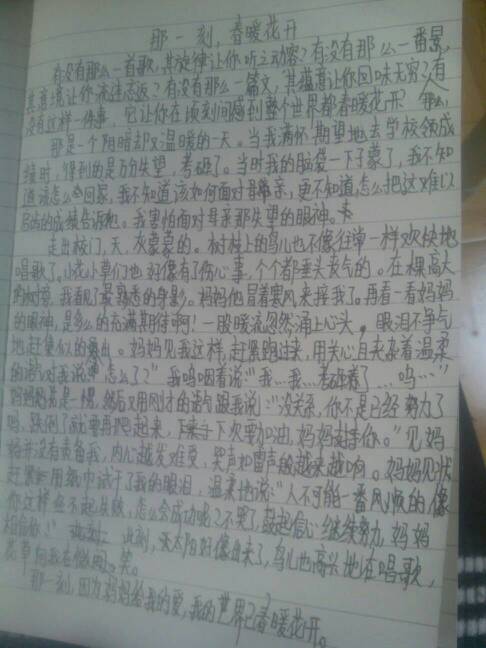 那一刻,春暖花开
有没有那么一首歌,其旋律让你听之动容?有没有那么一番景,
其意境让你流连忘返?有没有那么一篇文,其蕴意让你回味无穷?有
没有这样一件事,它让你在顷刻间感到整个世界都春暖花开?
那是一个阴暗却又温暖的一天。当我满怀期望地去学校领成
绩时,得到的是万分失望,考砸了。当时我的脑袋一下子蒙了,我不知
道该怎么回家,我不知道该如何面对母亲,更不知道怎么把这难以
的成绩告诉她。我害怕面对母亲那失望的眼神。
走出校门,天,灰蒙蒙的。树上的鸟儿也不像往常一样欢快地
唱歌了,小花小草们也好像有了伤心事,个个都垂头丧气的。在一棵高大
的树旁,我看见了最熟悉的身影。妈妈他冒着寒风来接我了。再看一看妈妈
的眼神,是多么的充满期待啊!一股暖流忽然涌上心头,眼泪不争气
地赶集似的涌出。妈妈见我这样,赶紧跑过来,用关心且夹杂着温柔
的语气对我说:"怎么了?"我呜咽着说:"我…我…考砸了…呜…"
妈妈先是一愣,然后又用刚才的语气跟我说:"没关系,你不是已经努力了
吗,跌倒了就要再爬起来,下次要加油,妈妈支持你。"见妈
妈并没有责备我,内心越发难受,哭声和雷声般越来越响。妈妈见状
赶紧用纸巾拭干了我的眼泪,温柔地说:"人不可能一番风顺的,像
你这样经不起失败,怎么会成功呢?不哭了,鼓起信心继续努力,妈妈
相信你!"此刻,天太阳好像出来了,鸟儿也高兴地在唱歌,
花草向我在微笑。
那一刻,因为妈妈给我的爱,我的世界已春暖花开。